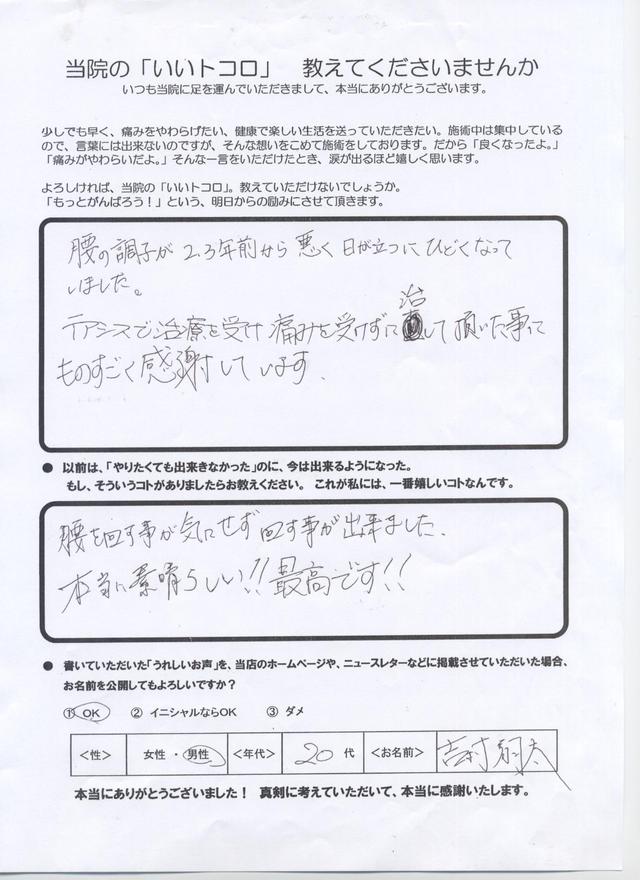 当院の「いいトコロ」 教えてくださいませんか
いつも当院に足を運んでいただきまして、本当にありがとうございます。
少しでも早く、痛みをやわらげたい、健康で楽しい生活を送っていただきたい。施術中は集中している
ので、言葉には出来ないのですが、そんな想いをこめて施術をしております。だから「良くなったよ。」
「痛みがやわらいだよ。」そんな一言をいただけたとき、涙が出るほど嬉しく思います。
よろしければ、当院の「いいトコロ」。教えていただけないでしょうか。
「もっとがんばろう！」という、明日からの励みにさせて頂きます。
腰の調子が2.3年前から悪く日が立つにひどくなって
いました。
テアシスで治療を受け痛みを受けずに治して頂いた事に
ものすごく感謝しています.
● 以前は、「やりたくても出来きなかった」のに、今は出来るようになった。
もし、そういうコトがありましたらお教えください。 これが私には、一番嬉しいコトなんです。
腰を回す事が気にせず回す事が出来ました.
本当に素晴らしい!!最高です!!
● 書いていただいた「うれしいお声」を、当店のホームページや、ニュースレターなどに掲載させていただいた場合、
お名前を公開してもよろしいですか？
① OK ② イニシャルならOK ③ ダメ
<性> 女性・男性 <年代> 20代 <お名前> 吉村 翔太
本当にありがとうございました！ 真剣に考えていただいて、本当に感謝いたします。